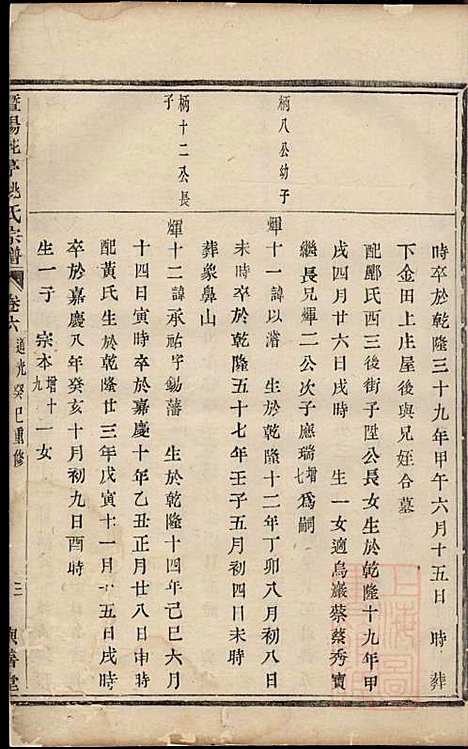 時卒於乾隆三十九年甲午六月十五日 時 葬
下金田上庄屋後與兄姪合墓
配酈氏西三後街子陞公長女生於乾隆十九年甲
戌四月廿六日戌時 生一女適烏巖蔡蔡秀寶
繼長兄煇二公次子應瑞增七爲嗣
柄八公幼子
煇十一諱以濬 生於乾隆十二年丁卯八月初八日
未時卒於乾隆五十七年壬子五月初四日未時
葬象鼻山
柄十二公長子
煇十二諱承祐字錫藩 生於乾隆十四年己巳六月
十四日寅時卒於嘉慶十年乙丑正月廿八日申時
配黃氏生於乾隆廿三年戊寅十一月十五日戌時
卒於嘉慶八年癸亥十月初九日酉時
生一子 宗本增十九 一女
暨陽 亭姚氏宗譜 卷六 道光癸巳重修 三 善堂